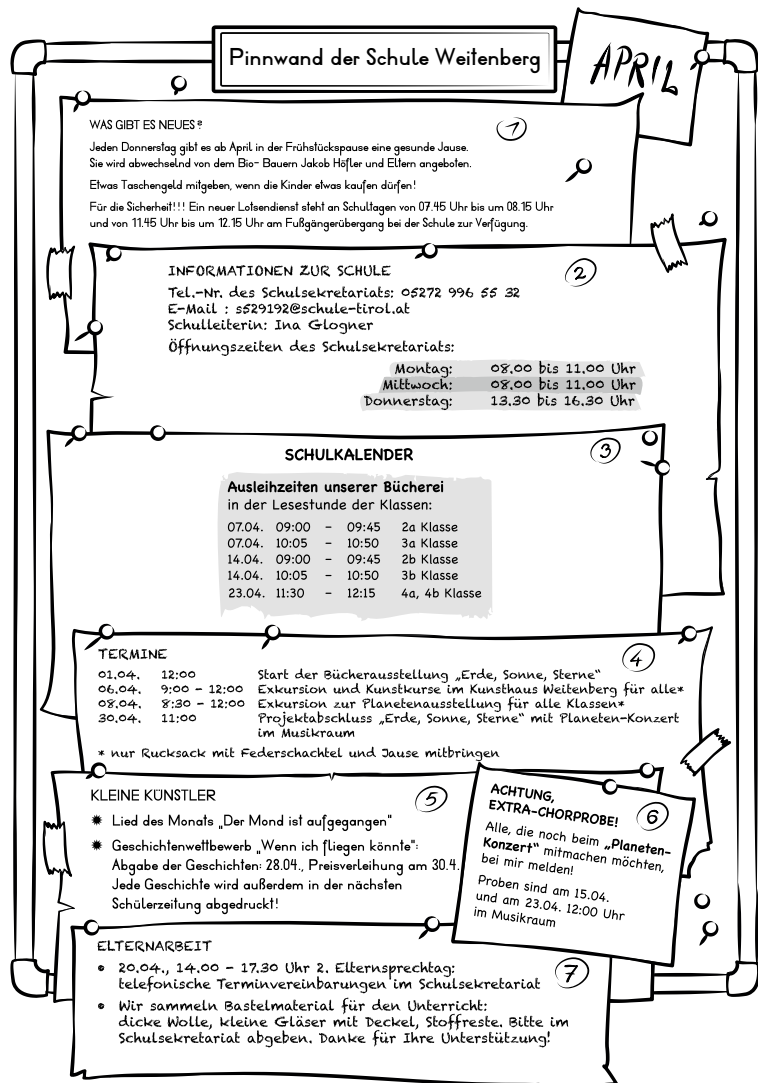 Pinnwand der Schule Weitenberg
APRIL
WAS GIBT ES NEUES?
1
Jeden Donnerstag gibt es ab April in der Frühstückspause eine gesunde Jause.
Sie wird abwechselnd von dem Bio- Bauern Jakob Höfler und Eltern angeboten.
Etwas Taschengeld mitgeben, wenn die Kinder etwas kaufen dürfen!
Für die Sicherheit!!! Ein neuer Lotsendienst steht an Schultagen von 07.45 Uhr bis um 08.15 Uhr
und von 11.45 Uhr bis um 12.15 Uhr am Fußgängerübergang bei der Schule zur Verfügung.
INFORMATIONEN ZUR SCHULE
2
Tel.-Nr. des Schulsekretariats: 05272 996 55 32
E-Mail : s529192@schule-tirol.at
Schulleiterin: Ina Glogner
Öffnungszeiten des Schulsekretariats:
Montag: 08.00 bis 11.00 Uhr
Mittwoch: 08.00 bis 11.00 Uhr
Donnerstag: 13.30 bis 16.30 Uhr
SCHULKALENDER
3
Ausleihzeiten unserer Bücherei
in der Lesestunde der Klassen:
07.04. 09:00 - 09:45 2a Klasse
07.04. 10:05 - 10:50 3a Klasse
14.04. 09:00 - 09:45 2b Klasse
14.04. 10:05 - 10:50 3b Klasse
23.04. 11:30 - 12:15 4a, 4b Klasse
TERMINE
4
01.04. 12:00 Start der Bücherausstellung „Erde, Sonne, Sterne“
06.04. 9:00 - 12:00 Exkursion und Kunstkurse im Kunsthaus Weitenberg für alle*
08.04. 8:30 - 12:00 Exkursion zur Planetenausstellung für alle Klassen*
30.04. 11:00 Projektabschluss „Erde, Sonne, Sterne“ mit Planeten-Konzert
im Musikraum
* nur Rucksack mit Federschachtel und Jause mitbringen
KLEINE KÜNSTLER
5
Lied des Monats „Der Mond ist aufgegangen“
Geschichtenwettbewerb „Wenn ich fliegen könnte“:
Abgabe der Geschichten: 28.04., Preisverleihung am 30.4.
Jede Geschichte wird außerdem in der nächsten
Schülerzeitung abgedruckt!
ACHTUNG,
EXTRA-CHORPROBE!
6
Alle, die noch beim „Planeten-
Konzert“ mitmachen möchten,
bei mir melden!
Proben sind am 15.04.
und am 23.04. 12:00 Uhr
im Musikraum
ELTERNARBEIT
7
• 20.04., 14.00 - 17.30 Uhr 2. Elternsprechtag:
telefonische Terminvereinbarungen im Schulsekretariat
• Wir sammeln Bastelmaterial für den Unterricht:
dicke Wolle, kleine Gläser mit Deckel, Stoffreste. Bitte im
Schulsekretariat abgeben. Danke für Ihre Unterstützung!